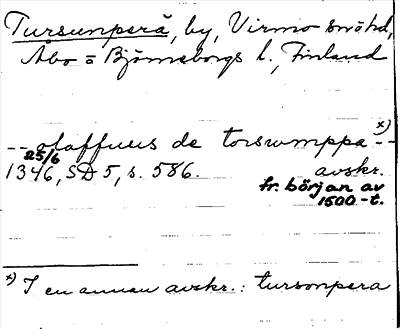 Tursunperä, by, Virmo snähd,
Åbo o Björneborgs l., Finland
x)
-- olaffuus de torswmppa --
25/6
1346, SD 5, s. 586. avskr.
fr. början av
1500-t.
x) I en annan avskr.: tursonpera